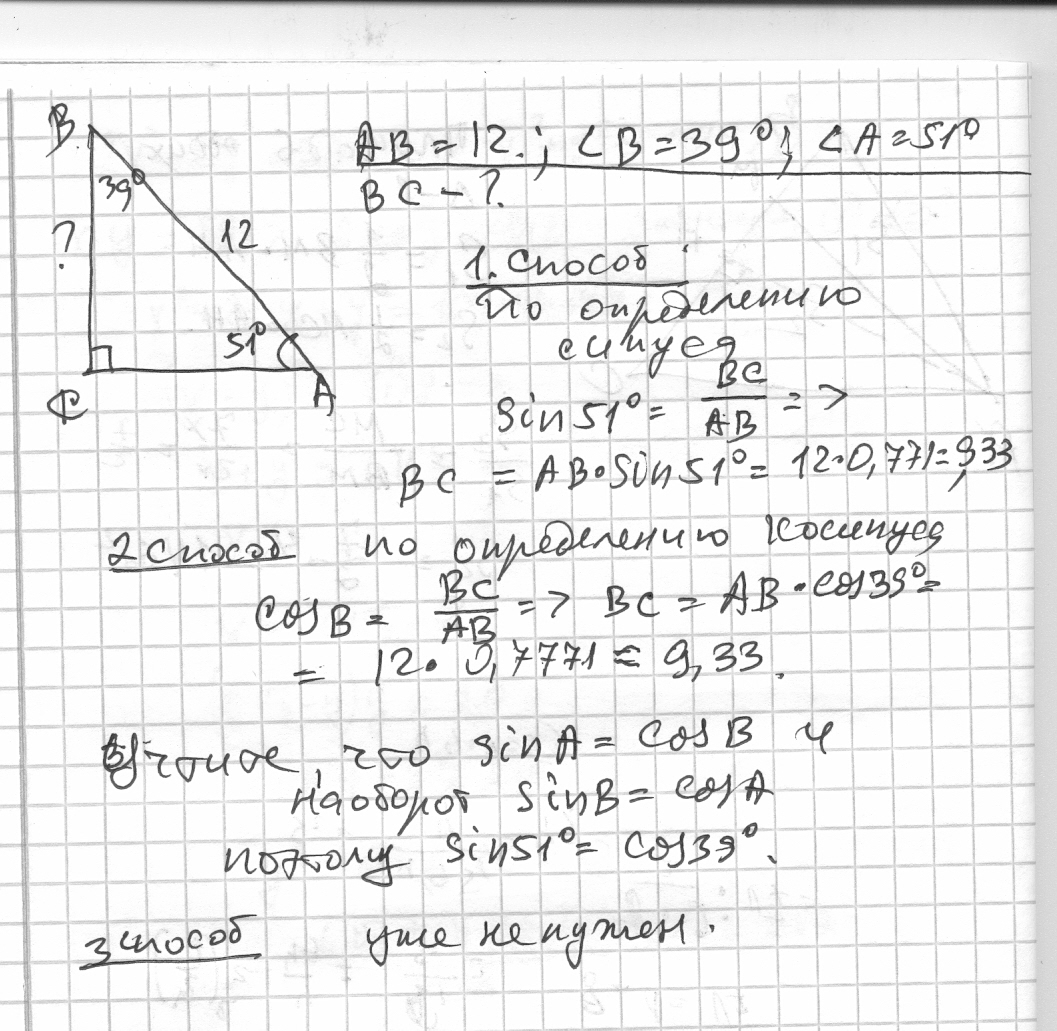 B
39°
?
12
51°
C
A
AB = 12. ; ∠B = 39°; ∠A = 51°
BC - ?
1. способ :
По определению
синуса
sin 51° = BC/AB = >
BC = AB • sin 51° = 12 • 0,771 = 9,33
2 способ по определению косинуса
cos B = BC/AB = > BC = AB • cos 39° =
= 12 • 0,7771 = 9,33.
Учтите, что sin A = cos B и
наоборот sin B = cos A
поэтому sin 51° = cos 39°.
3 способ уже не нужен.